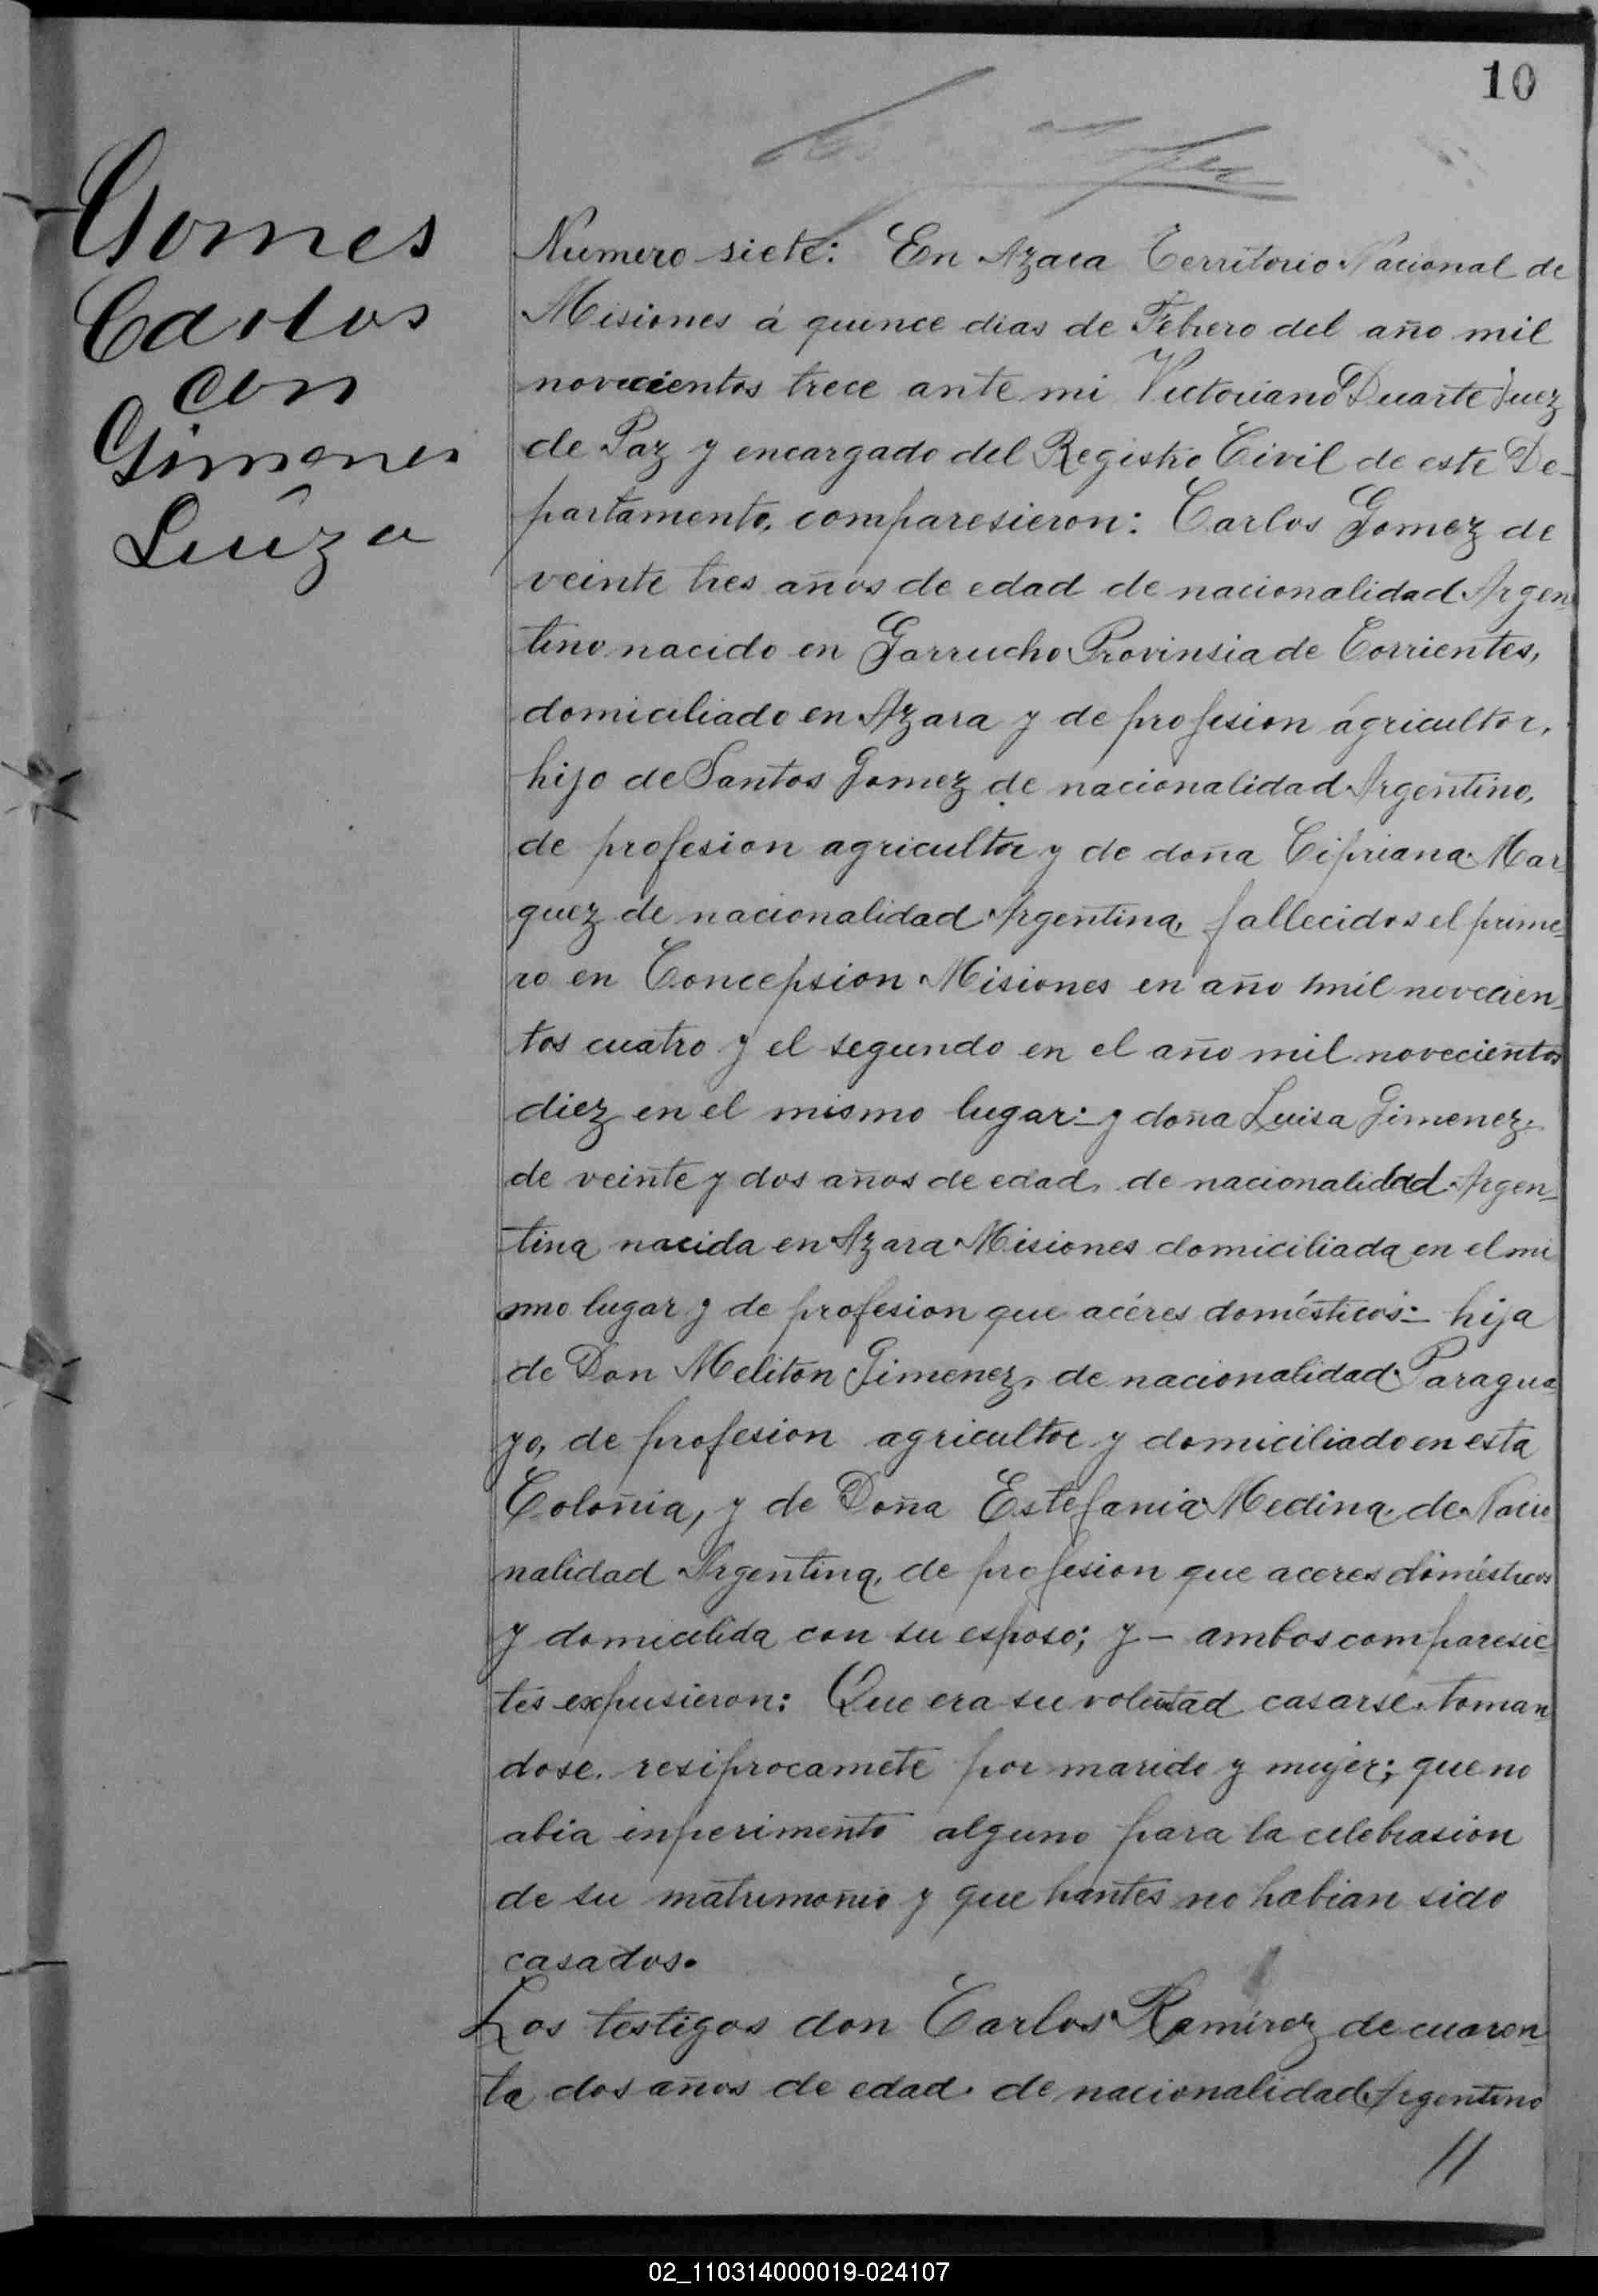 10
Gomes
Carlos
con
Gimenes
Luiza
Numero siete: En Azara Territorio Nacional de
Misiones á quince dias de Febrero del año mil
novecientos trece ante mi Victoriano Duarte Juez
de Paz y encargado del Registro Civil de este De-
partamento, comparesieron: Carlos Gomez de
veinte tres años de edad de nacionalidad Argen
tino nacido en Garrucho Provinsia de Corrientes,
domiciliado en Azara y de profesion ágricultor,
hijo de Santos Gomez de nacionalidad Argentino,
de profesion agricultor y de doña Cipriana Mar
quez de nacionalidad Argentina, fallecidos el prime-
ro en Concepsion Misiones en año mil novecien-
tos cuatro y el segundo en el año mil novecientos
diez en el mismo lugar:- y doña Luisa Gimenez,
de veinte y dos años de edad, de nacionalidad Argen-
tina nacida en Azara Misiones domiciliada en el mi
smo lugar y de profesion que acéres domésticos:- hija
de Don Meliton Gimenez, de nacionalidad Paragua
yo, de profesion agricultor y domiciliado en esta
Colonia, y de Doña Estefania Medina, de Nacio
nalidad Argentina, de profesion que aceres diméstricos
y domicilida con su esposo; y - ambos comparesie-
tes expusieron: Que era su volutad casarse toman
dose resiprocamete por marido y mujer; que no
abia inperimento alguno para la celebrasion
de su matrimonio y que hantes no habian sido
casados.
Los testigos don Carlos Ramirez de cuaren-
ta dos años de edad. de nacionalidad Argentino
//
02_110314000019-024107